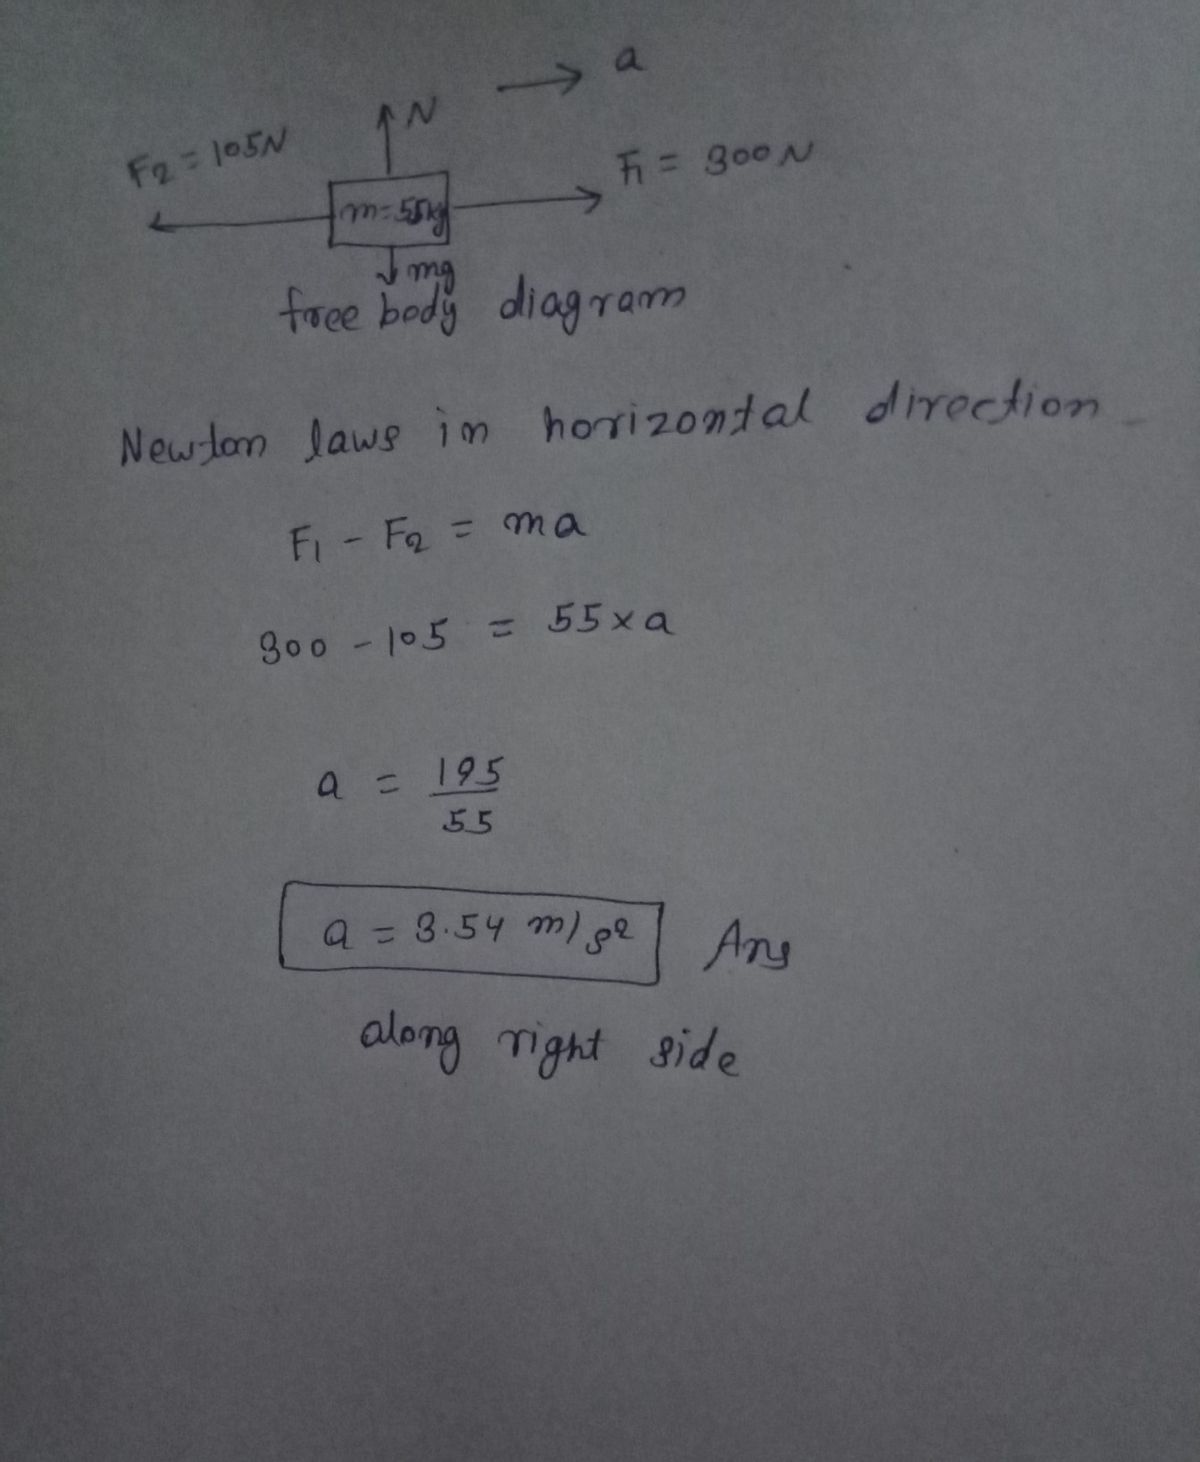 a
N
F2 = 105N
F1 = 300N
m=55kg
mg
free body diagram
Newton laws in horizontal direction
F1 - F2 = ma
300 - 105 = 55 x a
a = 195
55
a = 3.54 m/s2 Ans
along right side